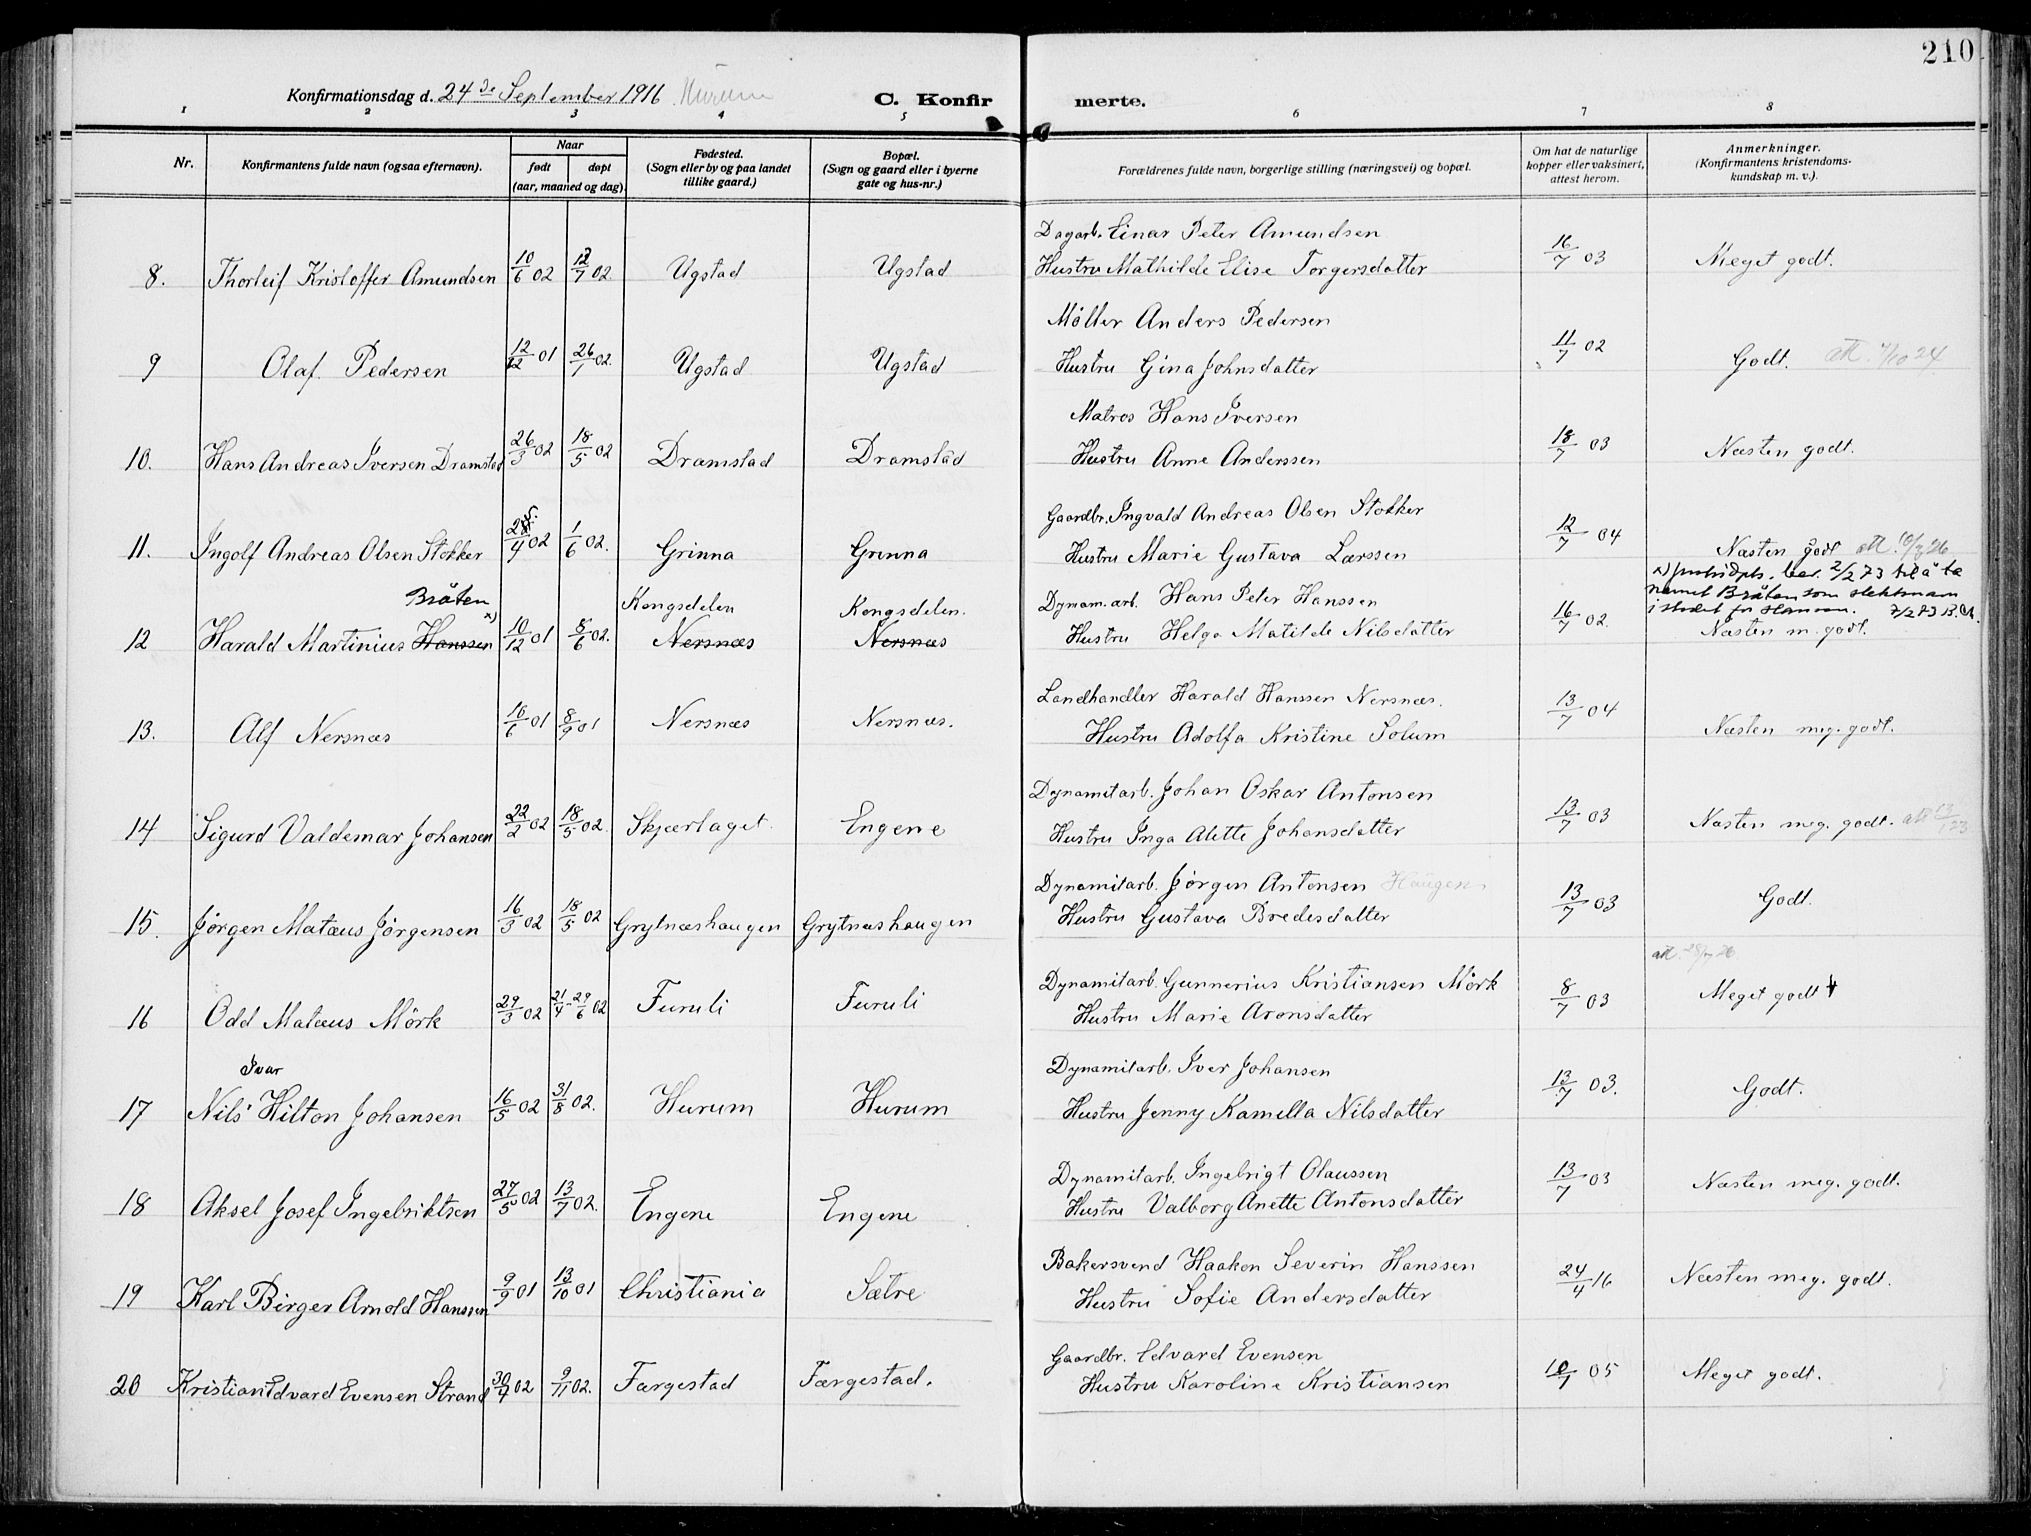 210
Konfirmationsdag d. 24de September 1916 Hurum
C. Konfirmerte.
1 2 3 4 5 6 7 8
Nr. Konfirmantens fulde navn (ogsaa efternavn). Naar født døpt (aar, maaned og dag). Fødested. (Sogn eller by og paa landet tillike gaard.) Bopæl. (Sogn og gaard eller i byerne gate og hus-nr.) Forældrenes fulde navn, borgerlige stilling (næringsvei) og bopæl. Om hat de naturlige kopper eller vaksinert, attest herom. Anmerkninger. (Konfirmantens kristendomskundskap m. v.).
Dagarb. Einar Peter Amundsen
8. Thorleif Kristoffer Amundsen 10/6 02 12/7 02 Ugstad Ugstad Hustru Mathilde Elise Torgersdatter 16/7 03 Meget godt.
Møller Anders Pedersen
9 Olaf Pedersen 12/12 01 26/1 02. Ugstad Ugstad Hustru Gina Johnsdatter 11/7 02 Godt. att. 4/10 24.
Matros Hans Iversen
10. Hans Andreas Iversen Dramstad 26/3 02 18/5 02 Dramstad Dramstad Hustru Anne Anderssen 18/7 03 Næsten godt.
Gaardbr. Ingvald Andreas Olsen Stokker
11. Ingolf Andreas Olsen Stokker 25/4 02 1/6 02. Grinna Grinna Hustru Marie Gustava Larssen 12/7 04 Næsten godt att.
Bråten Kongsdelen Kongsdelen. Dynam.arb. Hans Peter Hanssen bev. 2/2 73 til å ta
navnet Bråten som slektsnavn
i stedet for Hanssen. 7/2 73
12 Harald Martinius Hanssen x) 10/12 01 8/6 02. Nersnæs Nersnæs Hustru Helga Matilde Nilsdatter 16/7 02. Næsten m. godt.
Landhandler Harald Hanssen Nersnæs.
13. Alf Nersnæs 16/6 01 8/9 01 Nersnæs Nersnæs. Hustru Adolfa Kristine Solum 13/7 04 Næsten meg. godt.
Dynamitarb. Johan Oskar Antonsen
14 Sigurd Valdemar Johansen 22/2 02 18/5 02. Skjærlaget. Engene Hustru Inga Alette Johansdatter 13/7 03 Næsten meg. godt. att 13/1 23
Dynamitarb. Jørgen Antonsen Haugen
15. Jørgen Matæus Jørgensen 16/3 02 18/5 02 Grytnæshaugen Grytnæshaugen Hustru Gustava Bredesdatter 13/7 03 Godt.
Dynamitarb. Gunnerius Kristiansen Mörk att.
16 Odd Matæus Mörk 29/3 02 21/4 - 29/6 02 Furuli Furuli Hustru Marie Aronsdatter 8/7 03 Meget godt
Ivar Dynamitarb. Iver Johansen
17 Nils Hilton Johansen 16/5 02 31/8 02. Hurum Hurum Hustru Jenny Kamella Nilsdatter 13/7 03. Godt.
Dynamitarb. Ingebrigt Olaussen
18 Aksel Josef Ingebriktsen 27/5 02 13/7 02. Engene Engene Hustru Valborg Anette Antonsdatter 13/7 03 Næsten meg. godt.
Bakersvend Haakon Severin Hanssen
19 Karl Birger Arnold Hanssen 9/9 01 13/10 01 Christiania Sætre Hustru Sofie Andersdatter 24/4 16 Næsten meg. godt.
Gaardbr. Edvard Evensen
20 Kristian Edvard Evensen Strand 30/4 02 9/11 02. Færgestad Færgestad. Hustru Karoline Kristiansen 10/7 05 Meget godt.